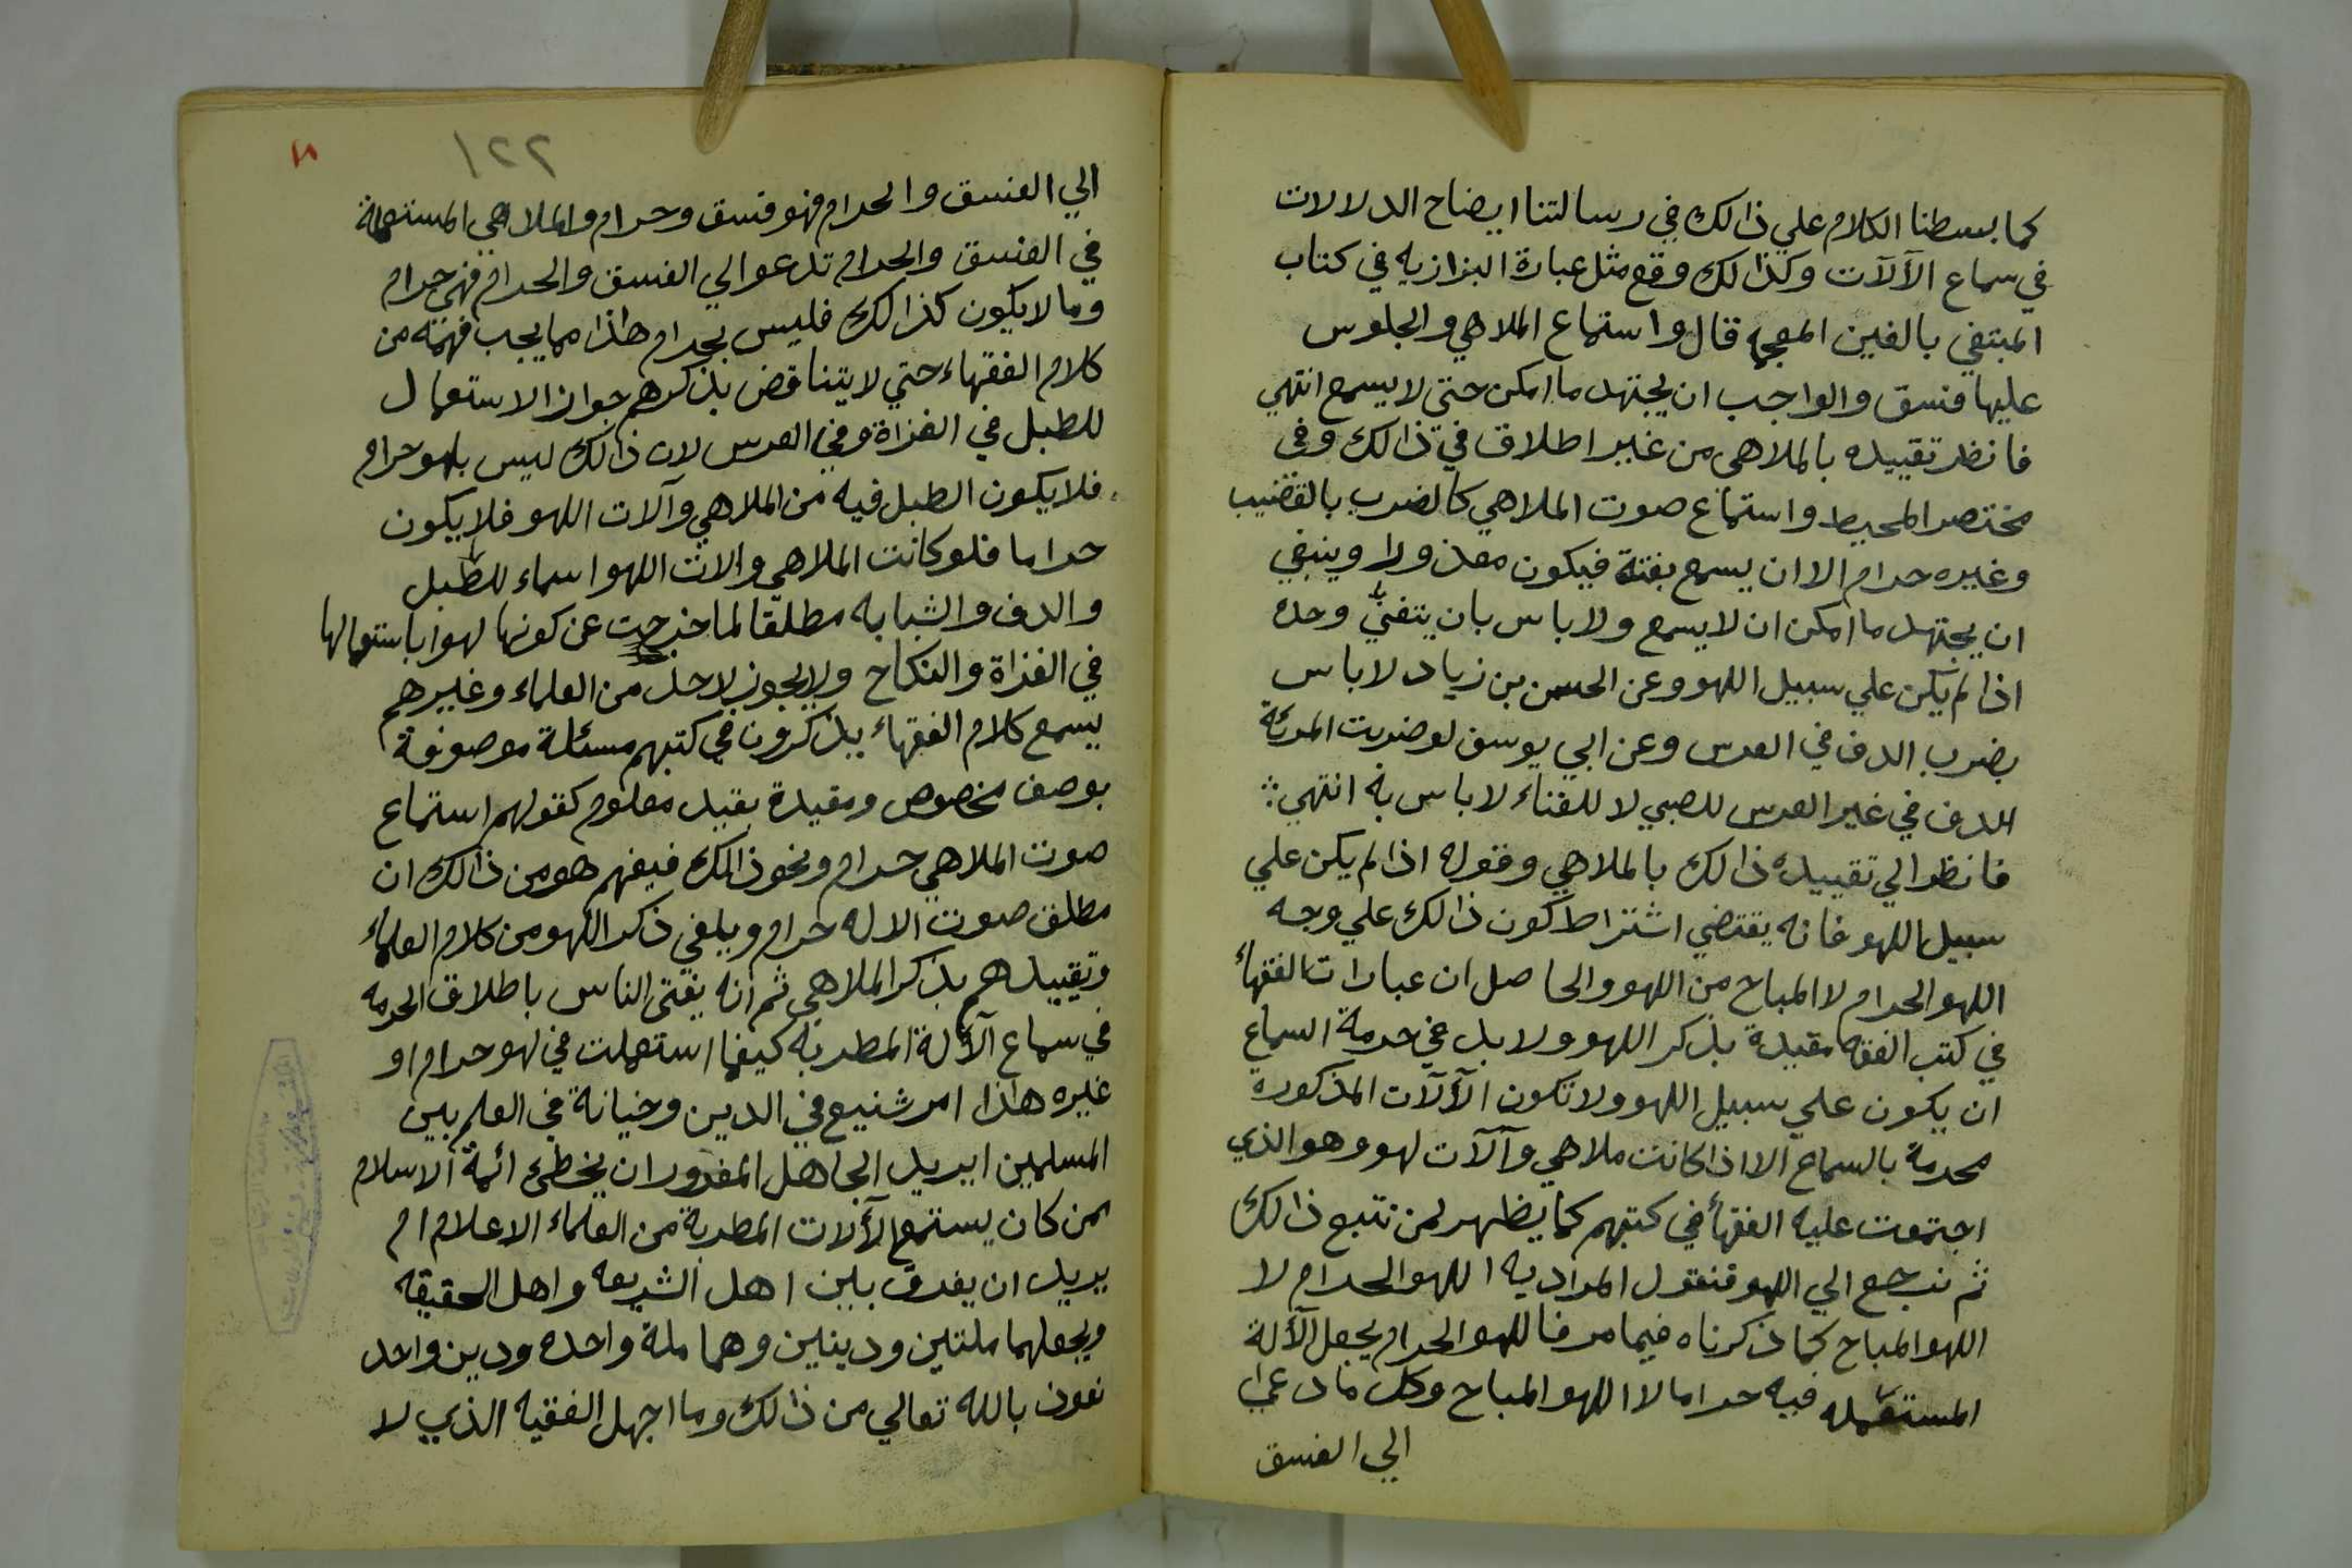 كما بسطنا الكلام علي ذالك في رسالتنا ايضاح الدلالات
في سماع الآلآت وكذا لك وقع مثل عبارة البزازيه في كتاب
المبتغي بالغين المعجمه قال واستماع الملاهي والجلوس
عليها فسق والواجب ان يجتهد ما امكن حتى لا يسمع انتهي
فانظر تقييده بالملاهى من غير اطلاق في ذالك وفى
مختصر المحيط واستماع صوت الملاهي كالضرب بالقضيب
وغيره حرام الا ان يسمع بغتة فيكون معذورا وينبغي
ان يجتهد ما امكن ان لا يسمع ولا باس بان يتغنّي وحده
اذا لم يكن علي سبيل اللهو وعن الحسن بن زياد لا باس
بضرب الدف في العرس وعن ابي يوسف لو ضربت المرئة
الدف في غير العرس للصبي لا للغناء لا باس به انتهي
فانظر الي تقييده ذالك بالملاهي وقوله اذا لم يكن علي
سبيل اللهو فانه يقتضي اشتراط كون ذالك علي وجه
اللهو الحرام لا المباح من اللهو والحاصل ان عبارات الفقهاء
في كتب الفقه مقيدة بذكر اللهو ولا بد في حرمة السماع
ان يكون علي سبيل اللهو ولا تكون الآلآت المذكوره
محرمة بالسماع الا اذا كانت ملاهي وآلآت لهو وهو الذي
اجتمعت عليه الفقهاء في كتبهم كما يظهر لمن تتبع ذالك
ثم نرجع الي اللهو فنقول المراد به اللهو الحرام لا
اللهو المباح كما ذكرناه فيما مر فاللهو الحرام يجعل الآلة
المستعمله فيه حراما لا اللهو المباح وكل ما دعي
الي الفسق
١٢٢
١٨
الي الفسق والحرام فهو فسق وحرام والملاهي المستعملة
في الفسق والحرام تدعو الي الفسق والحرام فهى حرام
وما لا يكون كذا لك فليس بحرام هاذا مما يجب فهمه من
كلام الفقهاء حتي لا يتناقض بذكرهم جواز الاستعمال
للطبل في الغزاة وفي العرس لان ذالك ليس بلهو حرام
فلا يكون الطبل فيه من الملاهي وآلات اللهو فلا يكون
حراما فلو كانت الملاهي والات اللهو اسماء للطبل
والدف والشبابه مطلقا لما خرجت عن كونها لهوا باستعمالها
في الغزاة والنكاح ولا يجوز لاحد من العلماء وغيرهم
يسمع كلام الفقهاء يذكرون في كتبهم مسئلة موصوفة
بوصف مخصوص ومقيدة بقيد معلوم كقولهم استماع
صوت الملاهي حرام ونحو ذالك فيفهم هو من ذالك ان
مطلق صوت الاله حرام ويلغي ذكر اللهو من كلام العلماء
وتقييدهم بذكر الملاهي ثم انه يفتى الناس باطلاق الحرمه
في سماع الآلة المطربه كيفما استعملت في لهو حرام او
غيره هاذا امر شنيع في الدين وخيانة في العلم بين
المسلمين ايريد الجاهل المغرور ان يخطئ ائمة الاسلام
ممن كان يستمع الآلات المطربة من العلماء الاعلام ام
يريد ان يفرق بين اهل الشريعه واهل الحقيقه
ويجعلهما ملتين ودينين وهما ملة واحده ودين واحد
نعوذ بالله تعالي من ذالك وما اجهل الفقيه الذي لا